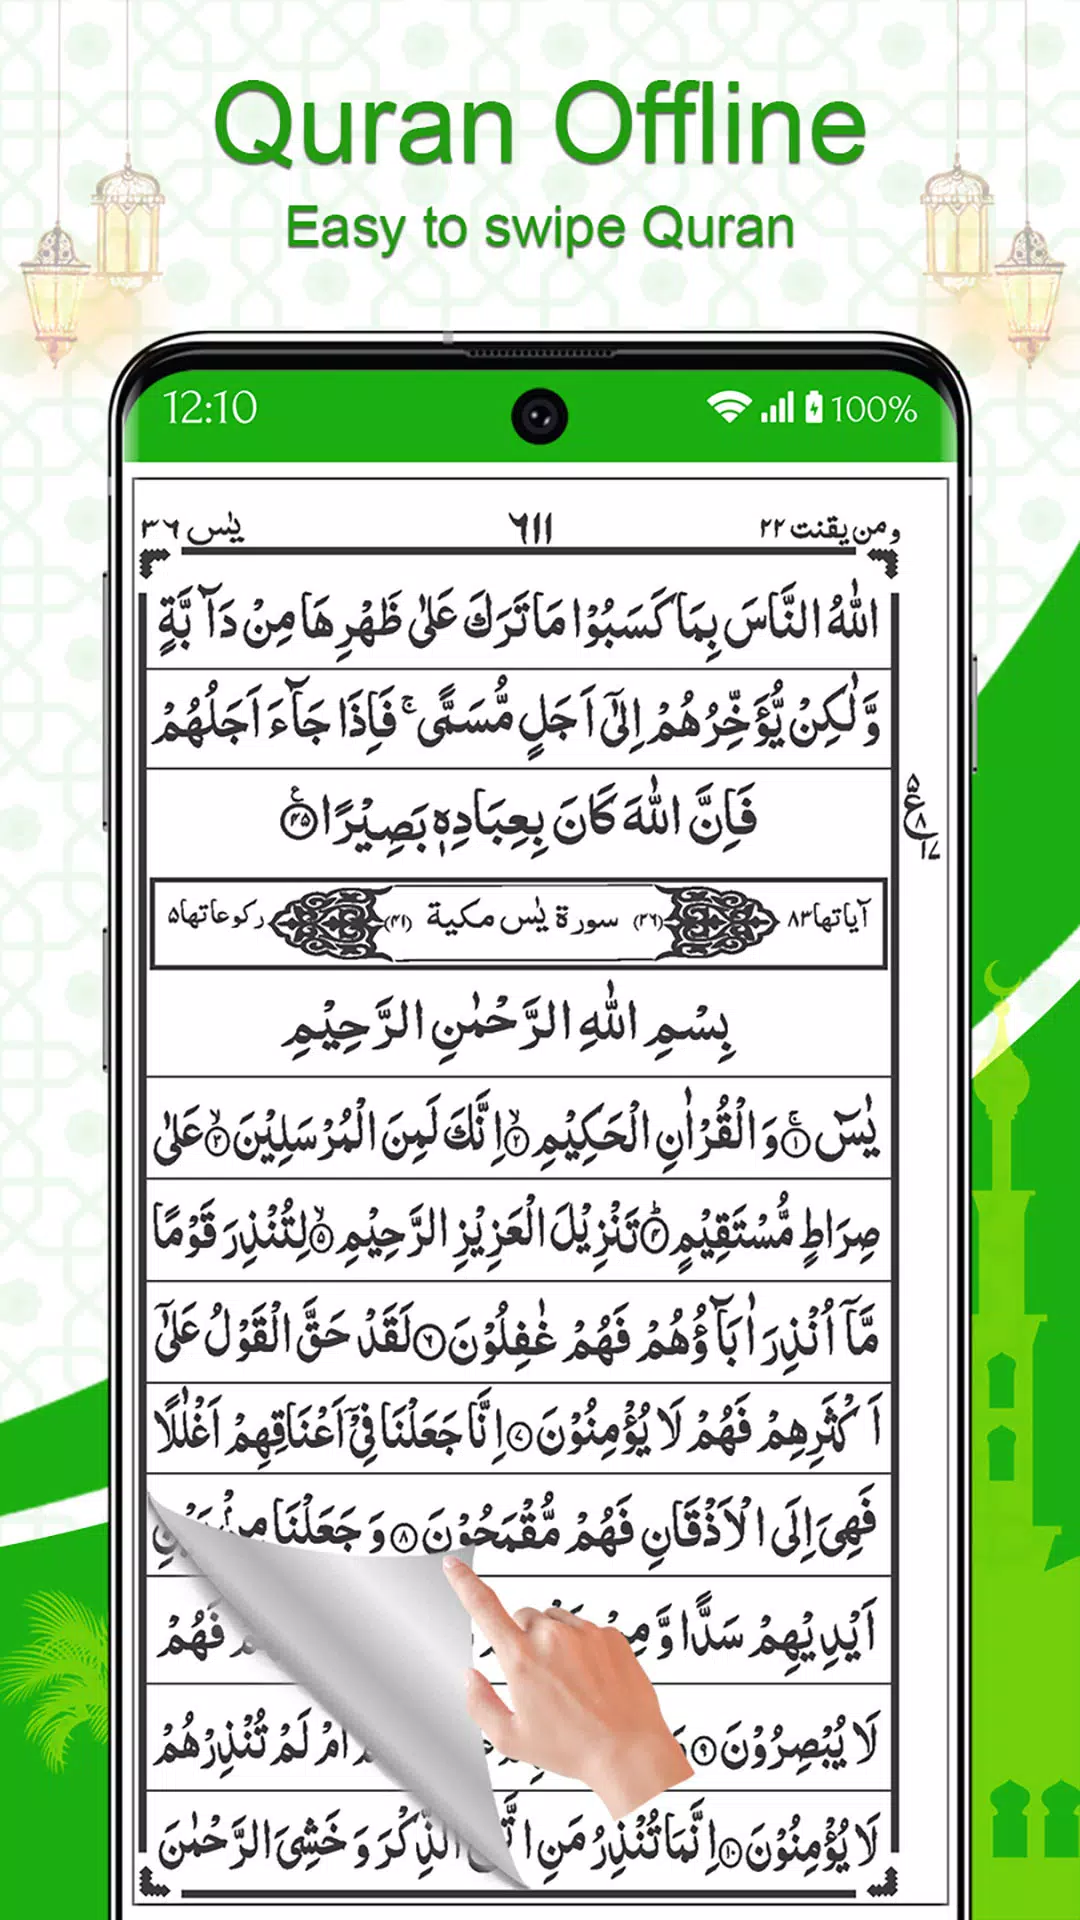 Quran Offline
Easy to swipe Quran
12:10 100%
ومن يقنت ٢٢ ٦١١ يٰس ٣٦
اللّٰهُ النَّاسَ بِمَا كَسَبُوْا مَا تَرَكَ عَلٰى ظَهْرِهَا مِنْ دَآبَّةٍ
وَّلٰكِنْ يُّؤَخِّرُهُمْ اِلٰٓى اَجَلٍ مُّسَمًّى ۚ فَاِذَا جَآءَ اَجَلُهُمْ
فَاِنَّ اللّٰهَ كَانَ بِعِبَادِهٖ بَصِيْرًا ﴿۴۵﴾
ع ٥ ٨ ١٧
آياتها ٨٣ (٣٦) سورة يٰس مكية (۴١) ركوعاتها ٥
بِسْمِ اللّٰهِ الرَّحْمٰنِ الرَّحِيْمِ
يٰسٓ ۚ﴿١﴾ وَ الْقُرْاٰنِ الْحَكِيْمِ ۙ﴿٢﴾ اِنَّكَ لَمِنَ الْمُرْسَلِيْنَ ۙ﴿٣﴾ عَلٰى
صِرَاطٍ مُّسْتَقِيْمٍ ؕ﴿۴﴾ تَنْزِيْلَ الْعَزِيْزِ الرَّحِيْمِ ۙ﴿۵﴾ لِتُنْذِرَ قَوْمًا
مَّآ اُنْذِرَ اٰبَآؤُهُمْ فَهُمْ غٰفِلُوْنَ ﴿۶﴾ لَقَدْ حَقَّ الْقَوْلُ عَلٰٓى
اَكْثَرِهِمْ فَهُمْ لَا يُؤْمِنُوْنَ ﴿٧﴾ اِنَّا جَعَلْنَا فِيْٓ اَعْنَاقِهِمْ اَغْلٰلًا
فَهِىَ اِلَى الْاَذْقَانِ فَهُمْ مُّقْمَحُوْنَ ﴿٨﴾ وَ جَعَلْنَا مِنْۢ بَيْنِ
اَيْدِيْهِمْ سَدًّا وَّ مِنْ فَهُمْ
لَا يُبْصِرُوْنَ ﴿٩﴾ اَمْ لَمْ تُنْذِرْهُمْ
لَا يُؤْمِنُوْنَ ﴿١٠﴾ اِنَّمَا تُنْذِرُ مَنِ اتَّبَعَ الذِّكْرَ وَ خَشِىَ الرَّحْمٰنَ